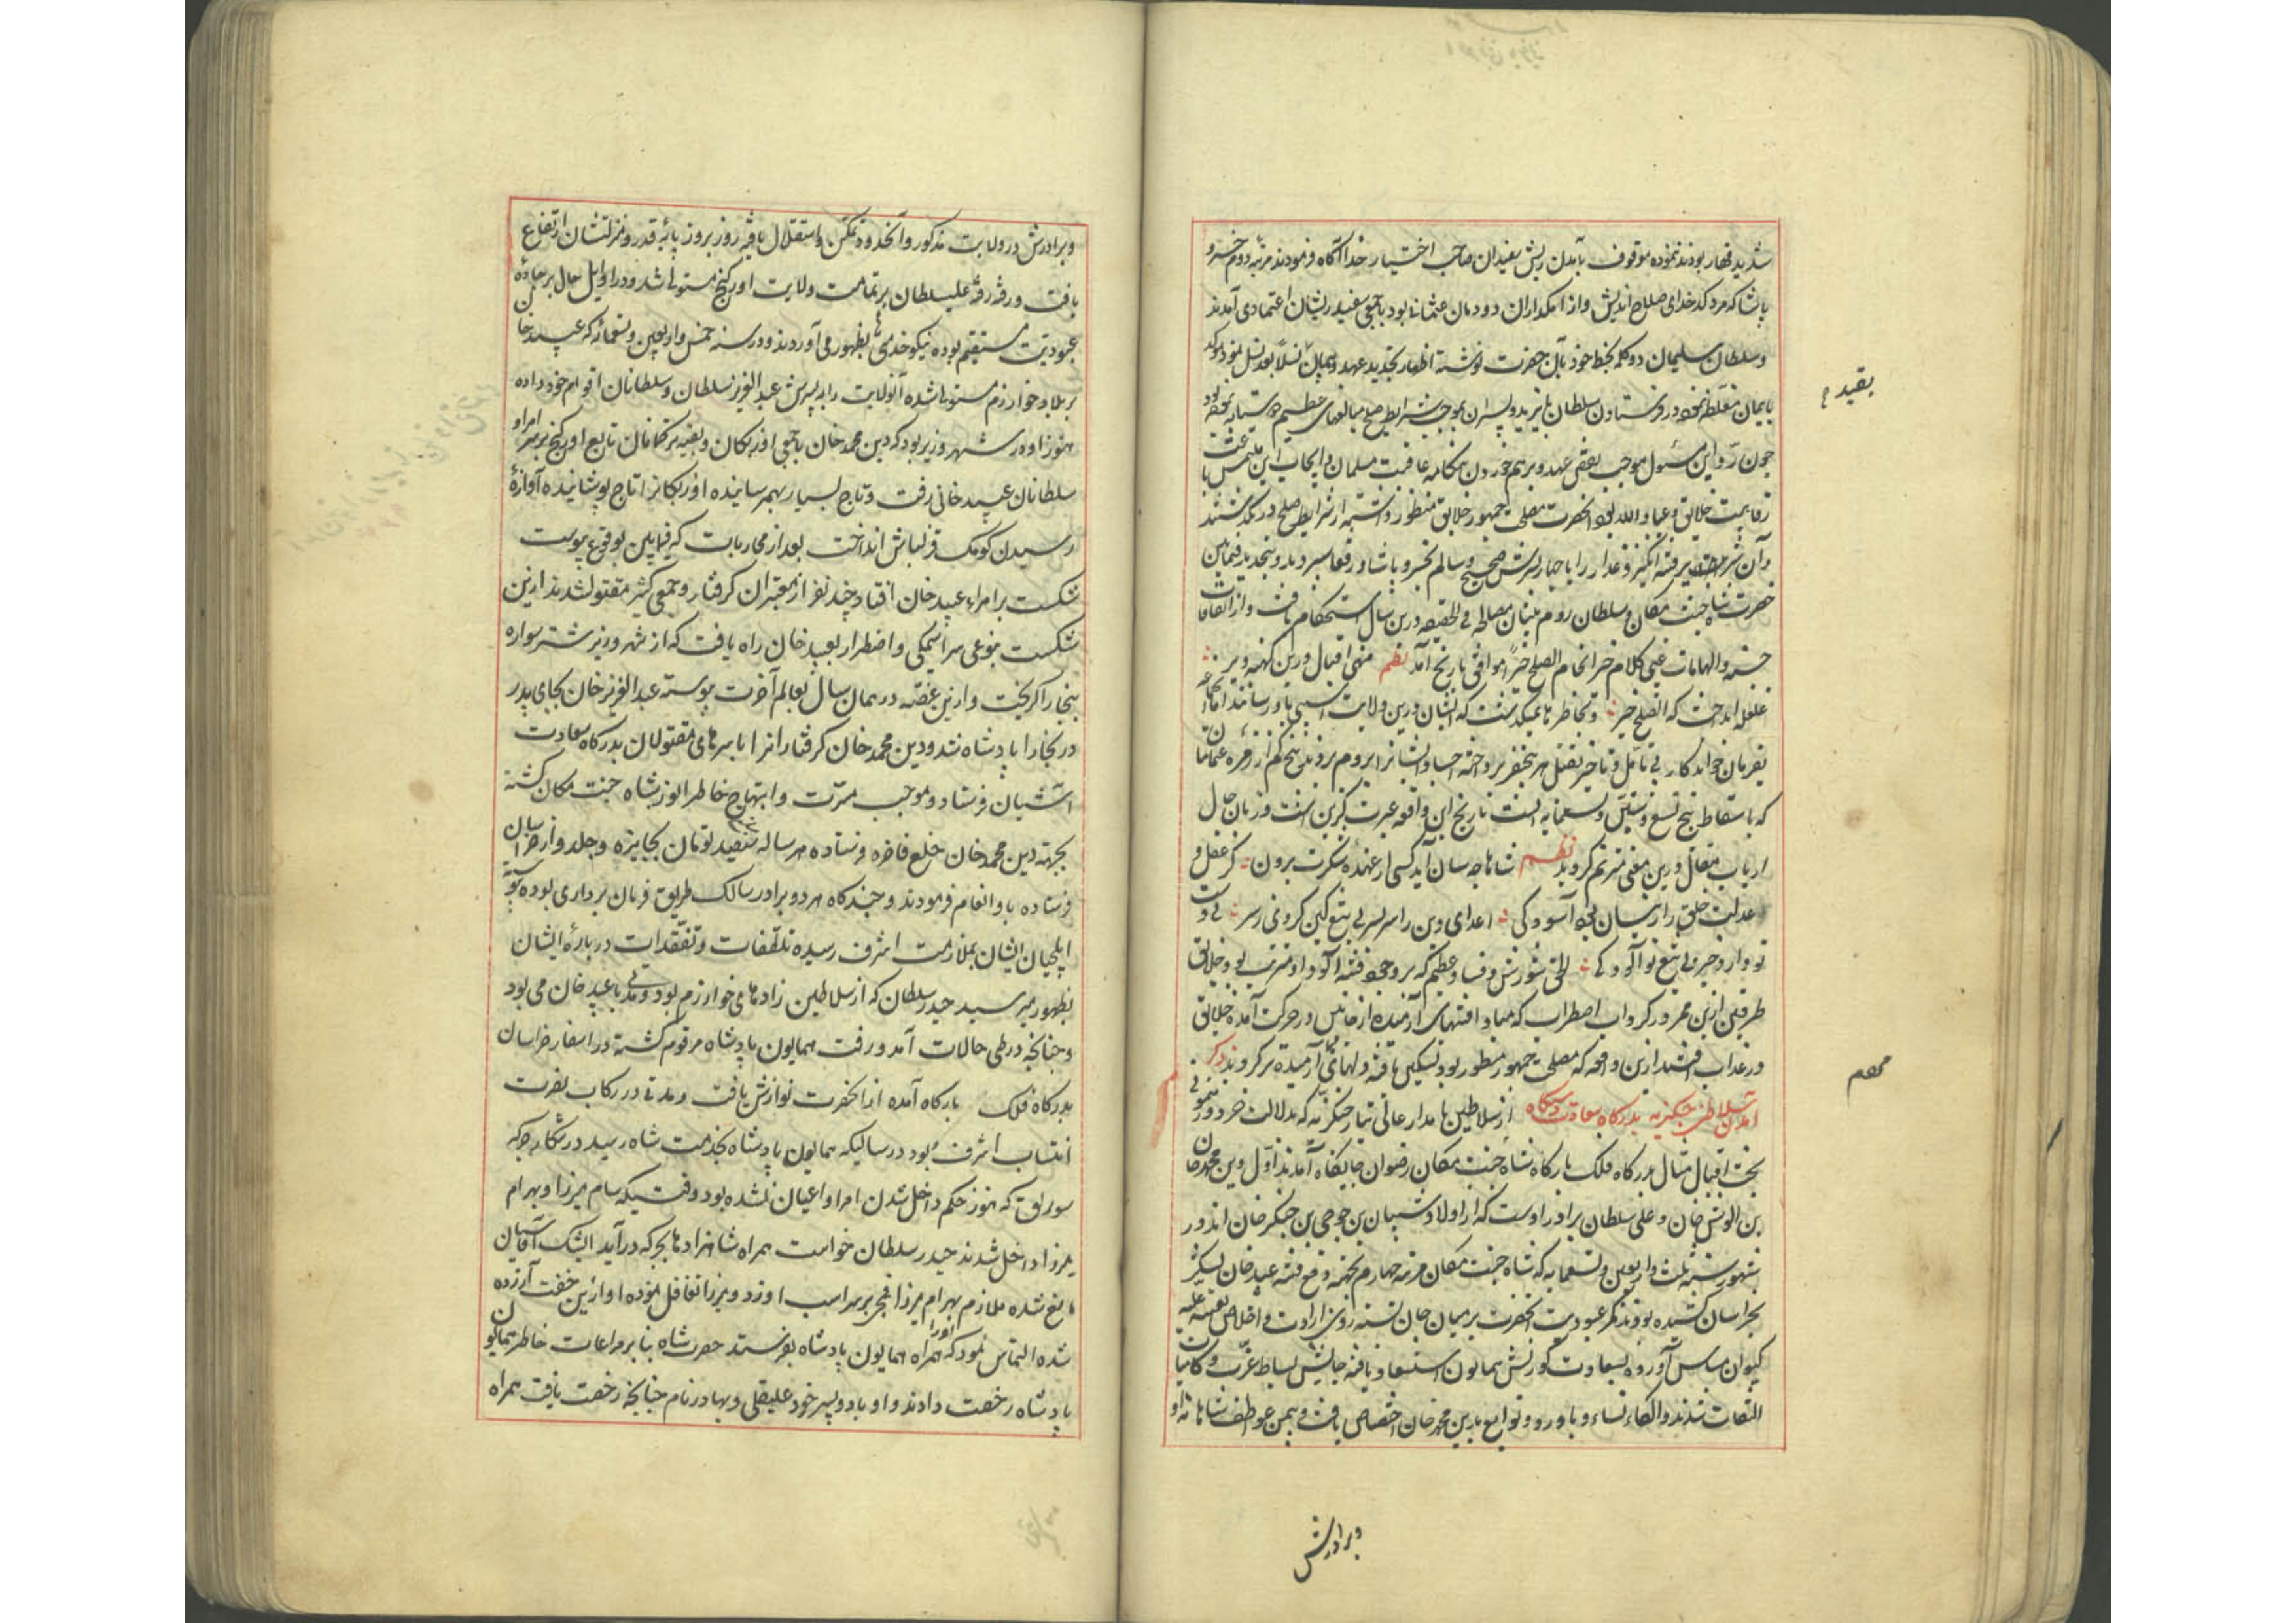 شدید قهار بودند نموده موقوف بآمدن ریش سفیدان صاحب اختیار خدا آگاه فرمودند مرتبه دوم خسرو
پاشا که مرد کدخدای صلاح اندیش و از نمکداران دودمان عثمانی بود با جمعی سفید ریشان اعتمادی آمدند
و سلطان سلیمان دو کلمه بخط خود بآن حضرت نوشته اظهار تجدید عهد و پیمان نسلاً بعد نسل نمود موکد
بایمان مغلظه نموده در فرستادن سلطان بایزید و پسران بموجب شرایط صلح مبالغهای عظیم
چون رد این مسئول موجب نقض عهد و برهم خوردن هنگامه عافیت مسلمان و ایجاب این ملتمس باعث
رفاهیت خلایق و عباد الله بود آنحضرت مصلحت جمهور خلایق منظور داشته از شرایط صلح در نگذشتند
و آن فتنه انگیز غدار را با چهار پسرش صحیح و سالم بخسرو پاشا و رفقا سپردند و بتجدید فیمابین
حضرت شاه جنت مکان و سلطان روم بنیان مصالحه فی الحقیقه درین سال استحکام یافت و از اتفاقات
حسنه و الهامات غیبی کلام خیر انجام الصلح خیر موافق تاریخ آمد نظم منهی اقبال درین کهنه دیر
غلغله انداخت که الصلح خیر و بخاطرها نمیگذشت که ایشان درین ولایت آسیبی باو رسانند اما
بفرمان خواندکار بی تأمل و تاخیر بقتل هر پنجنفر پرداخته اجساد ایشانرا بروم بردند پنج کم از زمره عثمانیان
که باسقاط پنج تسع و ستین و تسعمایه است تاریخ این واقعه عبرت گزین است و زمان حال
ارباب مقال درین معنی مترنم گردید نظم شاها چه سان آید کسی از عهده شکرت برون کز عقل و
عدالت خلق را زینسان بود آسودگی اعدای دین را سر بسر بی تیغ کین کردی ز سر
تو وارد خبر بی تیغ تو آلودگی لطفی شورش و فساد عظیم که بر وجود فتنه آلود او مترتب بود و خلایق
طرفین ازین ممر در گرداب اضطراب که مبادا فتنهای آرمیده از جانبین در حرکت آمده خلایق
در عذاب افتند ازین واقعه که مصلحت جمهور منظور بود تسکین یافته دلهای آرمیده تر گردید ذکر
آمدن سلاطین چنگیزیه بدرگاه سعادت دستگاه از سلاطین نامدار عالی تبار چنگیزیه که بدلالت خرد و رهنمونی
بخت اقبال مثال بدرگاه فلک بارگاه شاه جنت مکان رضوان جایگاه آمدند اول دین محمد خان
بن الوش خان و علی سلطان برادر اوست که از اولاد شیبان بن جوجی بن چنگیز خان اند و در
شهور سنه ثلث و اربعین و تسعمایه که شاه جنت مکان مرتبه چهارم بجهة دفع فتنه عبید خان لشکر
بخراسان کشیده بودند کمر عبودیت آنحضرت بر میان جان بسته روی ارادت و اخلاص بعتبه علیه
کیوان مماس آورده بسعادت کورنش همایون استسعاد یافته جالیس بساط عزت و کامیاب
التفات شدند و الکاء نساء و باورد و توابع بدین محمد خان اختصاص یافت و بیمن عواطف شاهانه او
بقید م
محمد
و برادرش
و برادرش در ولایت مذکور و آنحدود تمکن و استقلال یافته روز بروز پایه قدر و منزلتشان ارتفاع
یافت و رفته رفته علی سلطان بر تمامت ولایت اورکنج مستولی شد و در اوایل حال بر جاده
عبودیت مستقیم بوده نیکو خدمتی ها بظهور می آوردند و در سنه خمس و اربعین و تسعمائه که عبید خان
بر بلاد خوارزم مستولی شده آنولایت را به پسرش عبد العزیز سلطان و سلطانان اقوام خود داده
هنوز او در شهر وزیر بود که دین محمد خان با جمعی اوزبکان و بقیه ترکمانان تابع اورکنج بر سر امرا و
سلطانان عبید خانی رفت و تاج بسیار بهمرسانیده اوزبکانرا تاج پوشانیده آوازهٔ
رسیدن کومک قزلباش انداخت بعد از محاربات که فیمابین بوقوع پیوست
شکست بر امراء عبید خان افتاد چند نفر از معتبران گرفتار و جمعی کثیر مقتول شدند ازین
شکست بنوعی سراسیمگی و اضطرار بعبید خان راه یافت که از شهر وزیر شتر سواره
ببخارا گریخت و ازین غصه در همان سال بعالم آخرت پیوسته عبد العزیز خان بجای پدر
در بخارا پادشاه شد و دین محمد خان گرفتارانرا با سرهای مقتولان بدرگاه سعادت
آشیان فرستاد و موجب مسرت و ابتهاج خاطر انور شاه جنت مکان گشته
بجهة دین محمد خان خلع فاخره فرستاده هر ساله سیصد تومان بجایزه و جلدو از خراسان
فرستاده باو انعام فرمودند و چندگاه هر دو برادر سالک طریق فرمان برداری بوده
ایلچیان ایشان بملازمت اشرف رسیده تلطفات و تفقدات درباره ایشان
بظهور میرسید حیدر سلطان که از سلاطین زادهای خوارزم بود و مدتی با عبید خان می بود
و چنانچه در طی حالات آمد و رفت همایون پادشاه مرقوم گشته در اسفار خراسان
بدرگاه فلک بارگاه آمده از آنحضرت نوازش یافت و مدتی در رکاب نصرت
انتساب اشرف بود در سالیکه همایون پادشاه بخدمت شاه رسید در شکار جرگه
سورلق که هنوز حکم داخل شدن امرا و اعیان نشده بود وقتیکه سام میرزا و بهرام
میرزا داخل شدند حیدر سلطان خواست همراه شاهزادها بجرگه درآید ایشک آقاسیان
مانع شده ملازم بهرام میرزا قمچی بر سر اسب او زد و میرزا تغافل نموده او ازین خفت آزرده
شده التماس نمود که او را همراه همایون پادشاه بفرستند حضرت شاه بنابر مراعات خاطر همایون
پادشاه رخصت دادند و او با دو پسر خود علیقلی و بهادر نام چنانچه رخصت یافت همراه